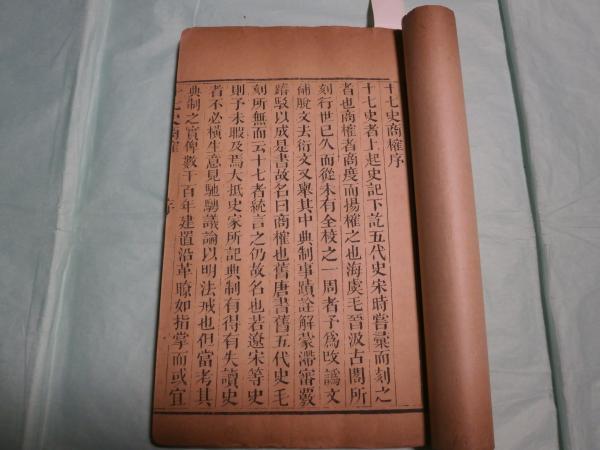 十七史商榷序
十七史者上起史記下訖五代史宋時嘗彙而刻之
者也商榷者商度而揚榷之也海虞毛晉汲古閣所
刻行世已久而從未有全校之一周者予為改譌文
補脫文去衍文又舉其中典制事蹟詮解蒙滯審覈
踳駁以成是書故名曰商榷也舊唐書舊五代史毛
刻所無而云十七者統言之仍故名也若遼宋等史
則予未暇及焉大抵史家所記典制有得有失讀史
者不必橫生意見馳騁議論以明法戒也但當考其
典制之實俾數千百年建置沿革瞭如指掌而或宜
十七史商榷 序